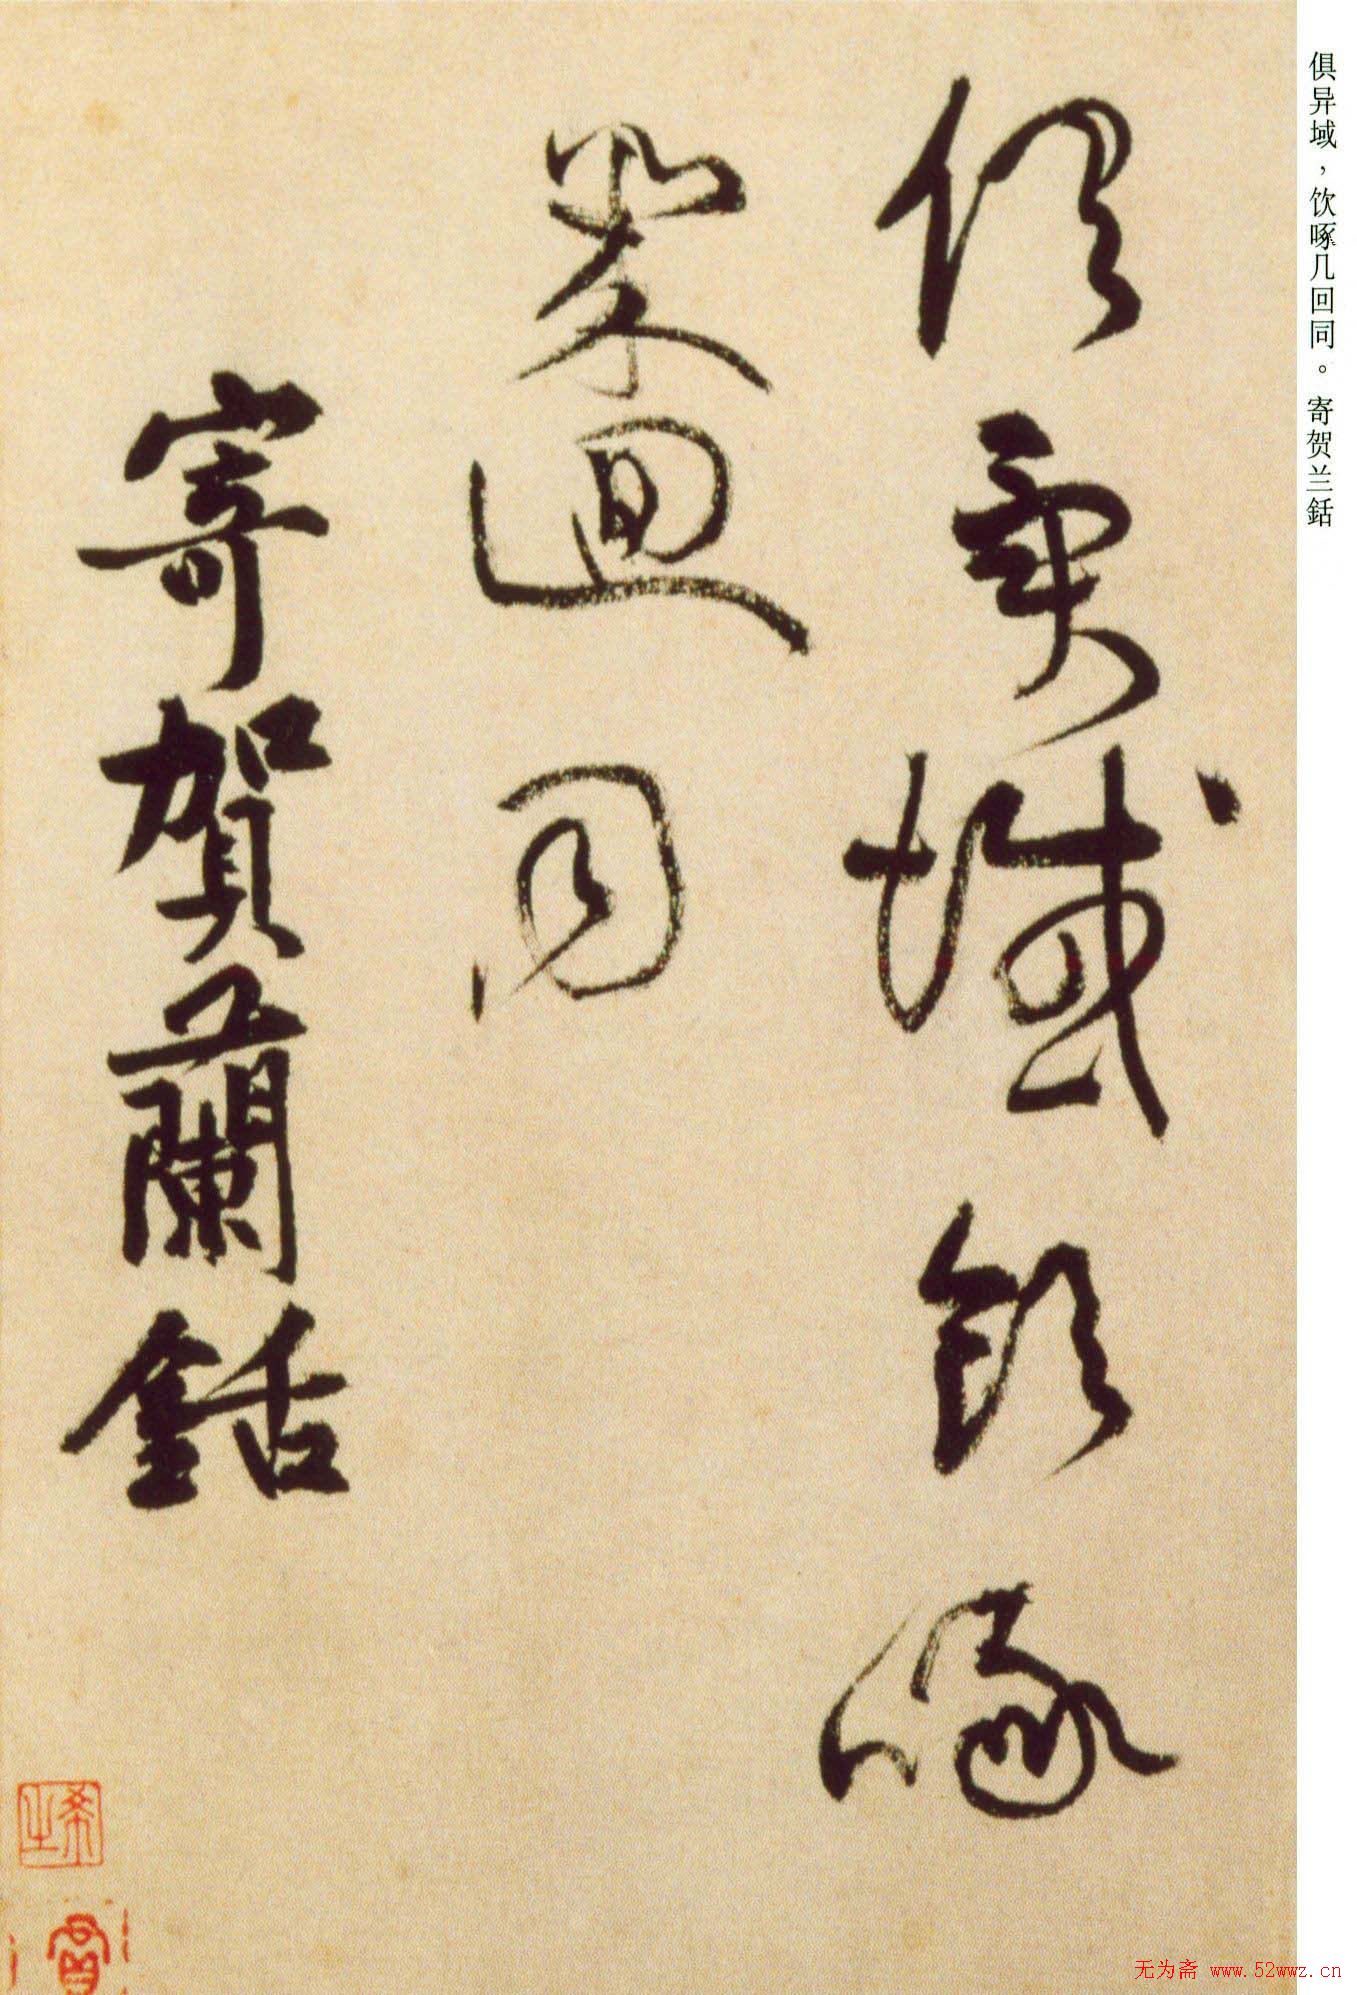 俱异域，饮啄几回同。寄贺兰銛
俱異域飲啄
幾迴同
寄賀蘭銛
无为斋 www.52wwz.cn